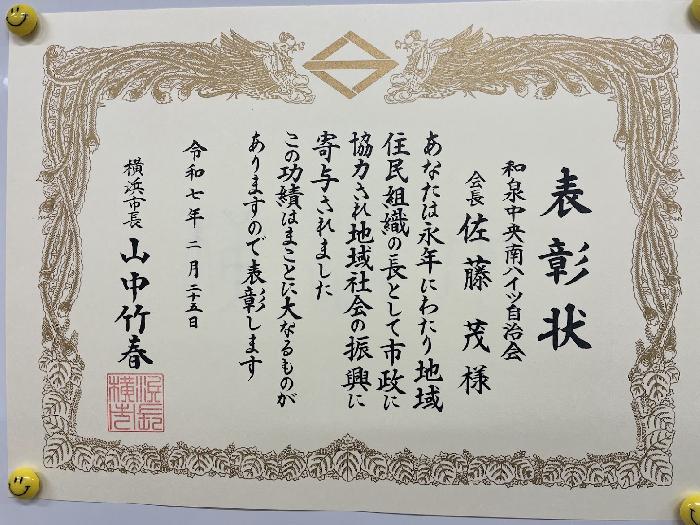 表彰状
和泉中央南ハイツ自治会
会長 佐藤茂様
あなたは永年にわたり地域
住民組織の長として市政に
協力され地域社会の振興に
寄与されました
この功績はまことに大なるものが
ありますので表彰します
令和七年二月二十五日
横浜市長 山中竹春
横浜市長